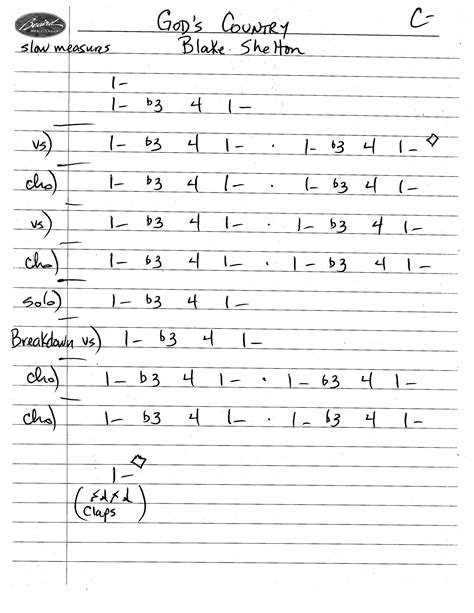 Beaird GOD'S COUNTRY C-
slow measures Blake Shelton
1-
1- b3 4 1-
vs) 1- b3 4 1- . 1- b3 4 1- ◇
cho) 1- b3 4 1- . 1- b3 4 1-
vs) 1- b3 4 1- . 1- b3 4 1-
cho) 1- b3 4 1- . 1- b3 4 1-
solo) 1- b3 4 1-
Breakdown vs) 1- b3 4 1-
cho) 1- b3 4 1- . 1- b3 4 1-
cho) 1- b3 4 1- . 1- b3 4 1-
1- ◇
claps